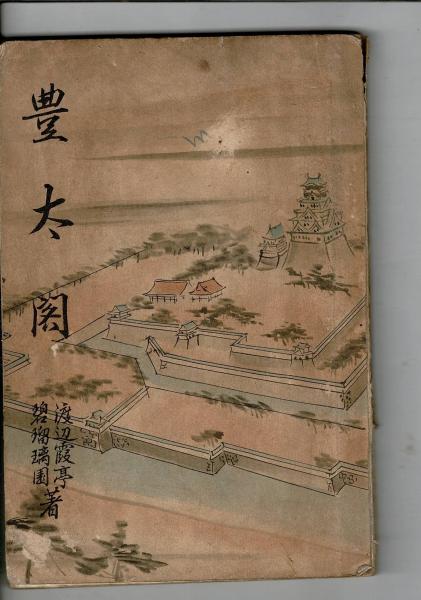 豊太閤
渡辺霞亭
碧瑠璃園
著